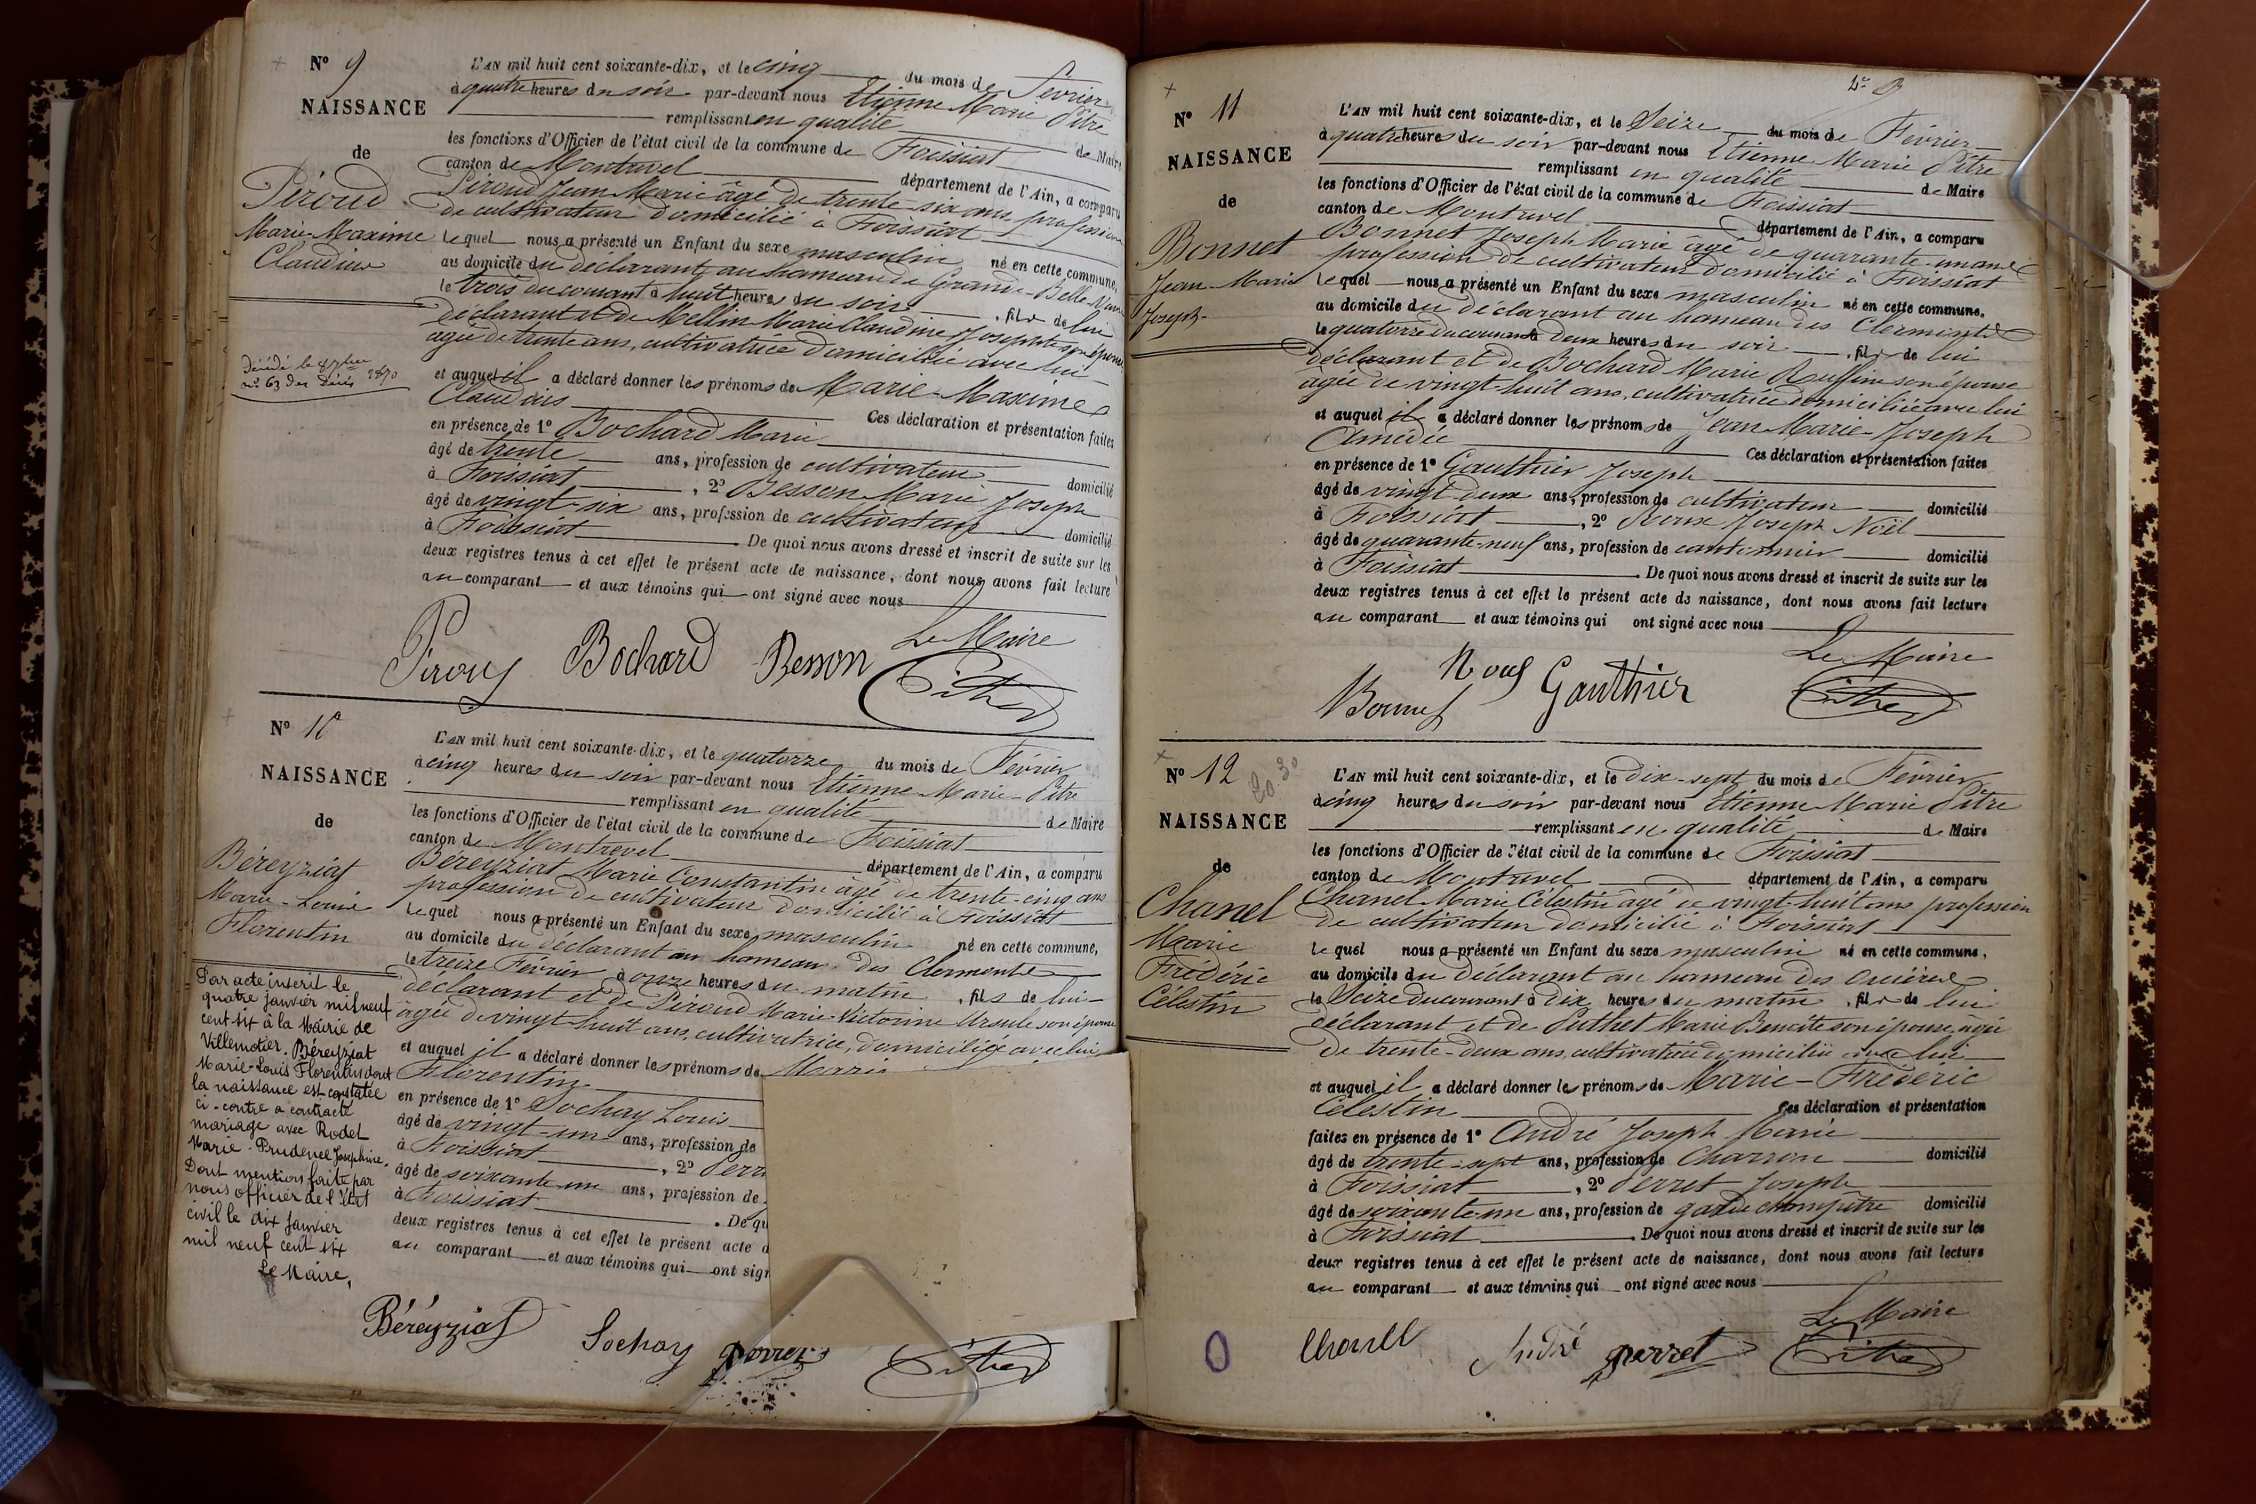 N° 9
NAISSANCE
de
Péroud
Marie-Maxime
Claudius
Décédé le
n° 63 des Décès 1870
L'AN mil huit cent soixante-dix, et le cinq du mois de Février
à quatre heures du soir par-devant nous Etienne Marie Pitre
remplissant en qualité de Maire
les fonctions d'Officier de l'état civil de la commune de Foissiat
canton de Montrevel département de l'Ain, a comparu
Péroud Jean Marie âgé de trente-six ans profession
de cultivateur domicilié à Foissiat
lequel nous a présenté un Enfant du sexe masculin né en cette commune,
au domicile du déclarant au hameau de Grande Belle Vavre
le trois du courant à huit heures du soir, fils de lui
déclarant et de Mellin Marie Claudine Josephte son épouse
âgée de trente ans, cultivatrice domiciliée avec lui
et auquel il a déclaré donner les prénoms de Marie-Maxime
Claudius Ces déclaration et présentation faites
en présence de 1° Bochard Marie
âgé de trente ans, profession de cultivateur domicilié
à Foissiat, 2° Besson Marie Joseph
âgé de vingt-six ans, profession de cultivateur domicilié
à Foissiat. De quoi nous avons dressé et inscrit de suite sur les
deux registres tenus à cet effet le présent acte de naissance, dont nous avons fait lecture
au comparant et aux témoins qui ont signé avec nous
Le Maire
Bochard Besson Pitre
N° 10
NAISSANCE
de
Béreyziat
Marie-Louis
Florentin
Par acte inscrit le
quatre janvier mil neuf
cent six à la Mairie de
Villemotier, Béreyziat
Marie-Louis Florentin dont
la naissance est constatée
ci-contre a contracté
mariage avec Rodet
Marie-Prudence Joséphine.
Dont mention faite par
nous officier de l'Etat
civil le dix janvier
mil neuf cent six
Le Maire,
L'AN mil huit cent soixante-dix, et le quatorze du mois de Février
à cinq heures du soir par-devant nous Etienne Marie Pitre
remplissant en qualité de Maire
les fonctions d'Officier de l'état civil de la commune de Foissiat
canton de Montrevel département de l'Ain, a comparu
Béreyziat Marie Constantin âgé de trente-cinq ans
profession de cultivateur domicilié à Foissiat
lequel nous a présenté un Enfant du sexe masculin né en cette commune,
au domicile du déclarant au hameau des Clermonts
le treize Février à onze heures du matin, fils de lui
déclarant et de Péroud Marie Victorine Ursule son épouse
âgée de vingt-huit ans, cultivatrice, domiciliée avec lui
et auquel il a déclaré donner les prénoms de Marie
Florentin
en présence de 1° Sochay Louis
âgé de vingt-un ans, profession de
à Foissiat, 2° Perr
âgé de soixante-un ans, profession de
à Foissiat. De qu
deux registres tenus à cet effet le présent acte d
au comparant et aux témoins qui ont sign
Béreyziat Sochay perret Pitre
N° 11
NAISSANCE
de
Bonnet
Jean-Marie
Joseph
L'AN mil huit cent soixante-dix, et le Seize du mois de Février
à quatre heures du soir par-devant nous Etienne Marie Pitre
remplissant en qualité de Maire
les fonctions d'Officier de l'état civil de la commune de Foissiat
canton de Montrevel département de l'Ain, a comparu
Bonnet Joseph Marie âgé de quarante-un ans
profession de cultivateur domicilié à Foissiat
lequel nous a présenté un Enfant du sexe masculin né en cette commune,
au domicile du déclarant au hameau des Clermonts
le quatorze du courant à Deux heures du soir, fils de lui
déclarant et de Bochard Marie Ruffine son épouse
âgée de vingt-huit ans, cultivatrice domiciliée avec lui
et auquel il a déclaré donner les prénoms de Jean-Marie-Joseph
Amédée Ces déclaration et présentation faites
en présence de 1° Gauthier Joseph
âgé de vingt deux ans, profession de cultivateur domicilié
à Foissiat, 2° Joseph Noël
âgé de quarante-neuf ans, profession de cantonnier domicilié
à Foissiat. De quoi nous avons dressé et inscrit de suite sur les
deux registres tenus à cet effet le présent acte de naissance, dont nous avons fait lecture
au comparant et aux témoins qui ont signé avec nous
Le Maire
Bonnet Gauthier Pitre
N° 12
NAISSANCE
de
Chanel
Marie
Frédéric
Célestin
L'AN mil huit cent soixante-dix, et le dix-sept du mois de Février
à cinq heures du soir par-devant nous Etienne Marie Pitre
remplissant en qualité de Maire
les fonctions d'Officier de l'état civil de la commune de Foissiat
canton de Montrevel département de l'Ain, a comparu
Chanel Marie Célestin âgé de vingt-huit ans profession
de cultivateur domicilié à Foissiat
lequel nous a présenté un Enfant du sexe masculin né en cette commune,
au domicile du déclarant au hameau des
le Seize du courant à Dix heures du matin, fils de lui
déclarant et de Puthet Marie Benoîte son épouse, âgée
de trente-deux ans, cultivatrice domiciliée avec lui
et auquel il a déclaré donner les prénoms de Marie-Frédéric
Célestin Ces déclaration et présentation
faites en présence de 1° André Joseph Marie
âgé de trente-sept ans, profession de Charron domicilié
à Foissiat, 2° Perret Joseph
âgé de soixante-un ans, profession de garde champêtre domicilié
à Foissiat. De quoi nous avons dressé et inscrit de suite sur les
deux registres tenus à cet effet le présent acte de naissance, dont nous avons fait lecture
au comparant et aux témoins qui ont signé avec nous
Le Maire
Chanel André perret Pitre